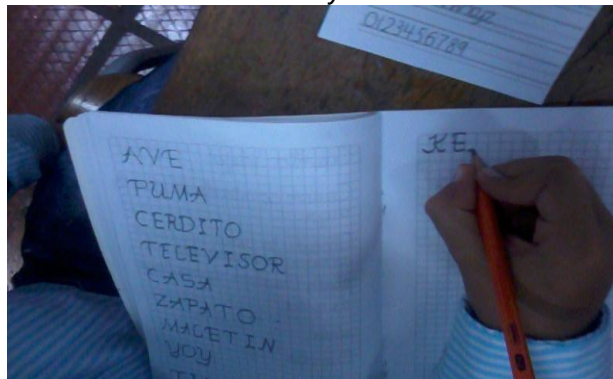 0123456789
AVE
PUMA
CERDITO
TELEVISOR
CASA
ZAPATO
MALETIN
YOY
KE